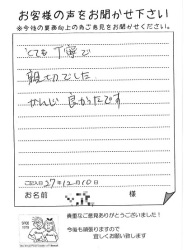 お客様の声をお聞かせ下さい
※今後の業務向上の為ご意見をお聞かせください。
とても丁寧で
親切でした
かんじ良かったです
ご記入日 27年12月10日
お名前 様
貴重なご意見ありがとうございました！
今後も頑張りますので
宜しくお願い致します